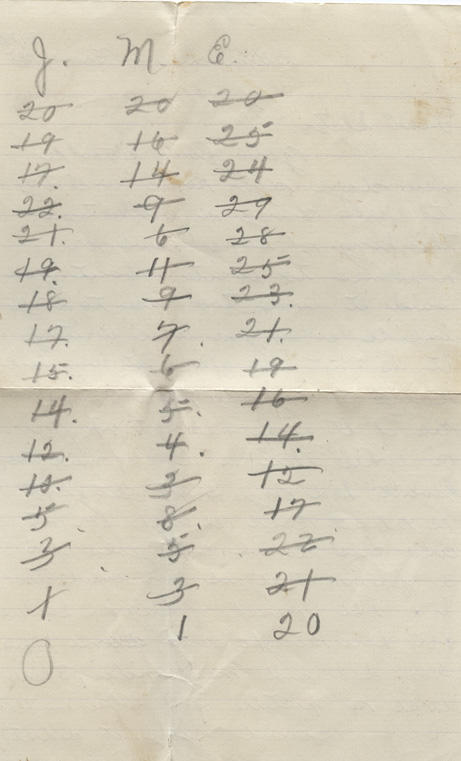 J. M E.
20 20 20
19 16 25
17. 14 24
22. 9 29
21. 6 28
19. 11 25
18 9 23.
17. 7. 21.
15. 6 19
14. 5. 16
12. 4. 14.
10. 3 12
5. 8. 17
3 5 22
1 3 21
1 20
0